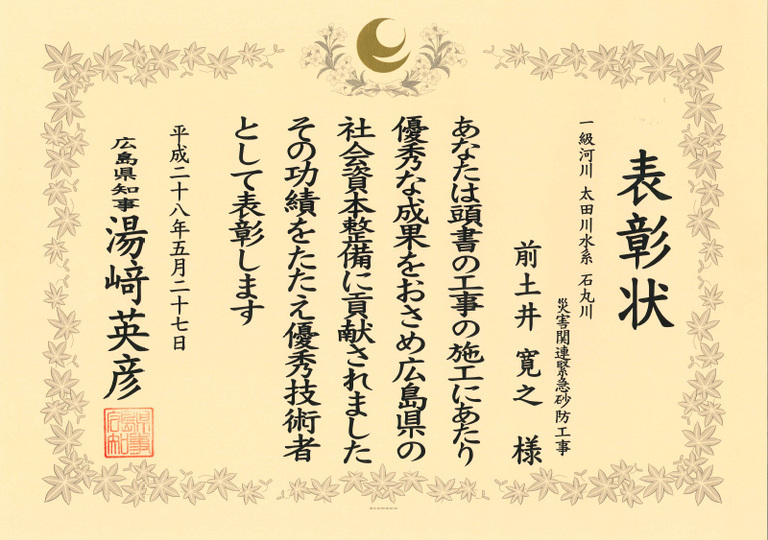 表彰状
一級河川 太田川水系 石丸川
災害関連緊急砂防工事
前土井 寛之 様
あなたは頭書の工事の施工にあたり
優秀な成果をおさめ広島県の
社会資本整備に貢献されました
その功績をたたえ優秀技術者
として表彰します
平成二十八年五月二十七日
広島県知事 湯﨑英彦
広島県知事